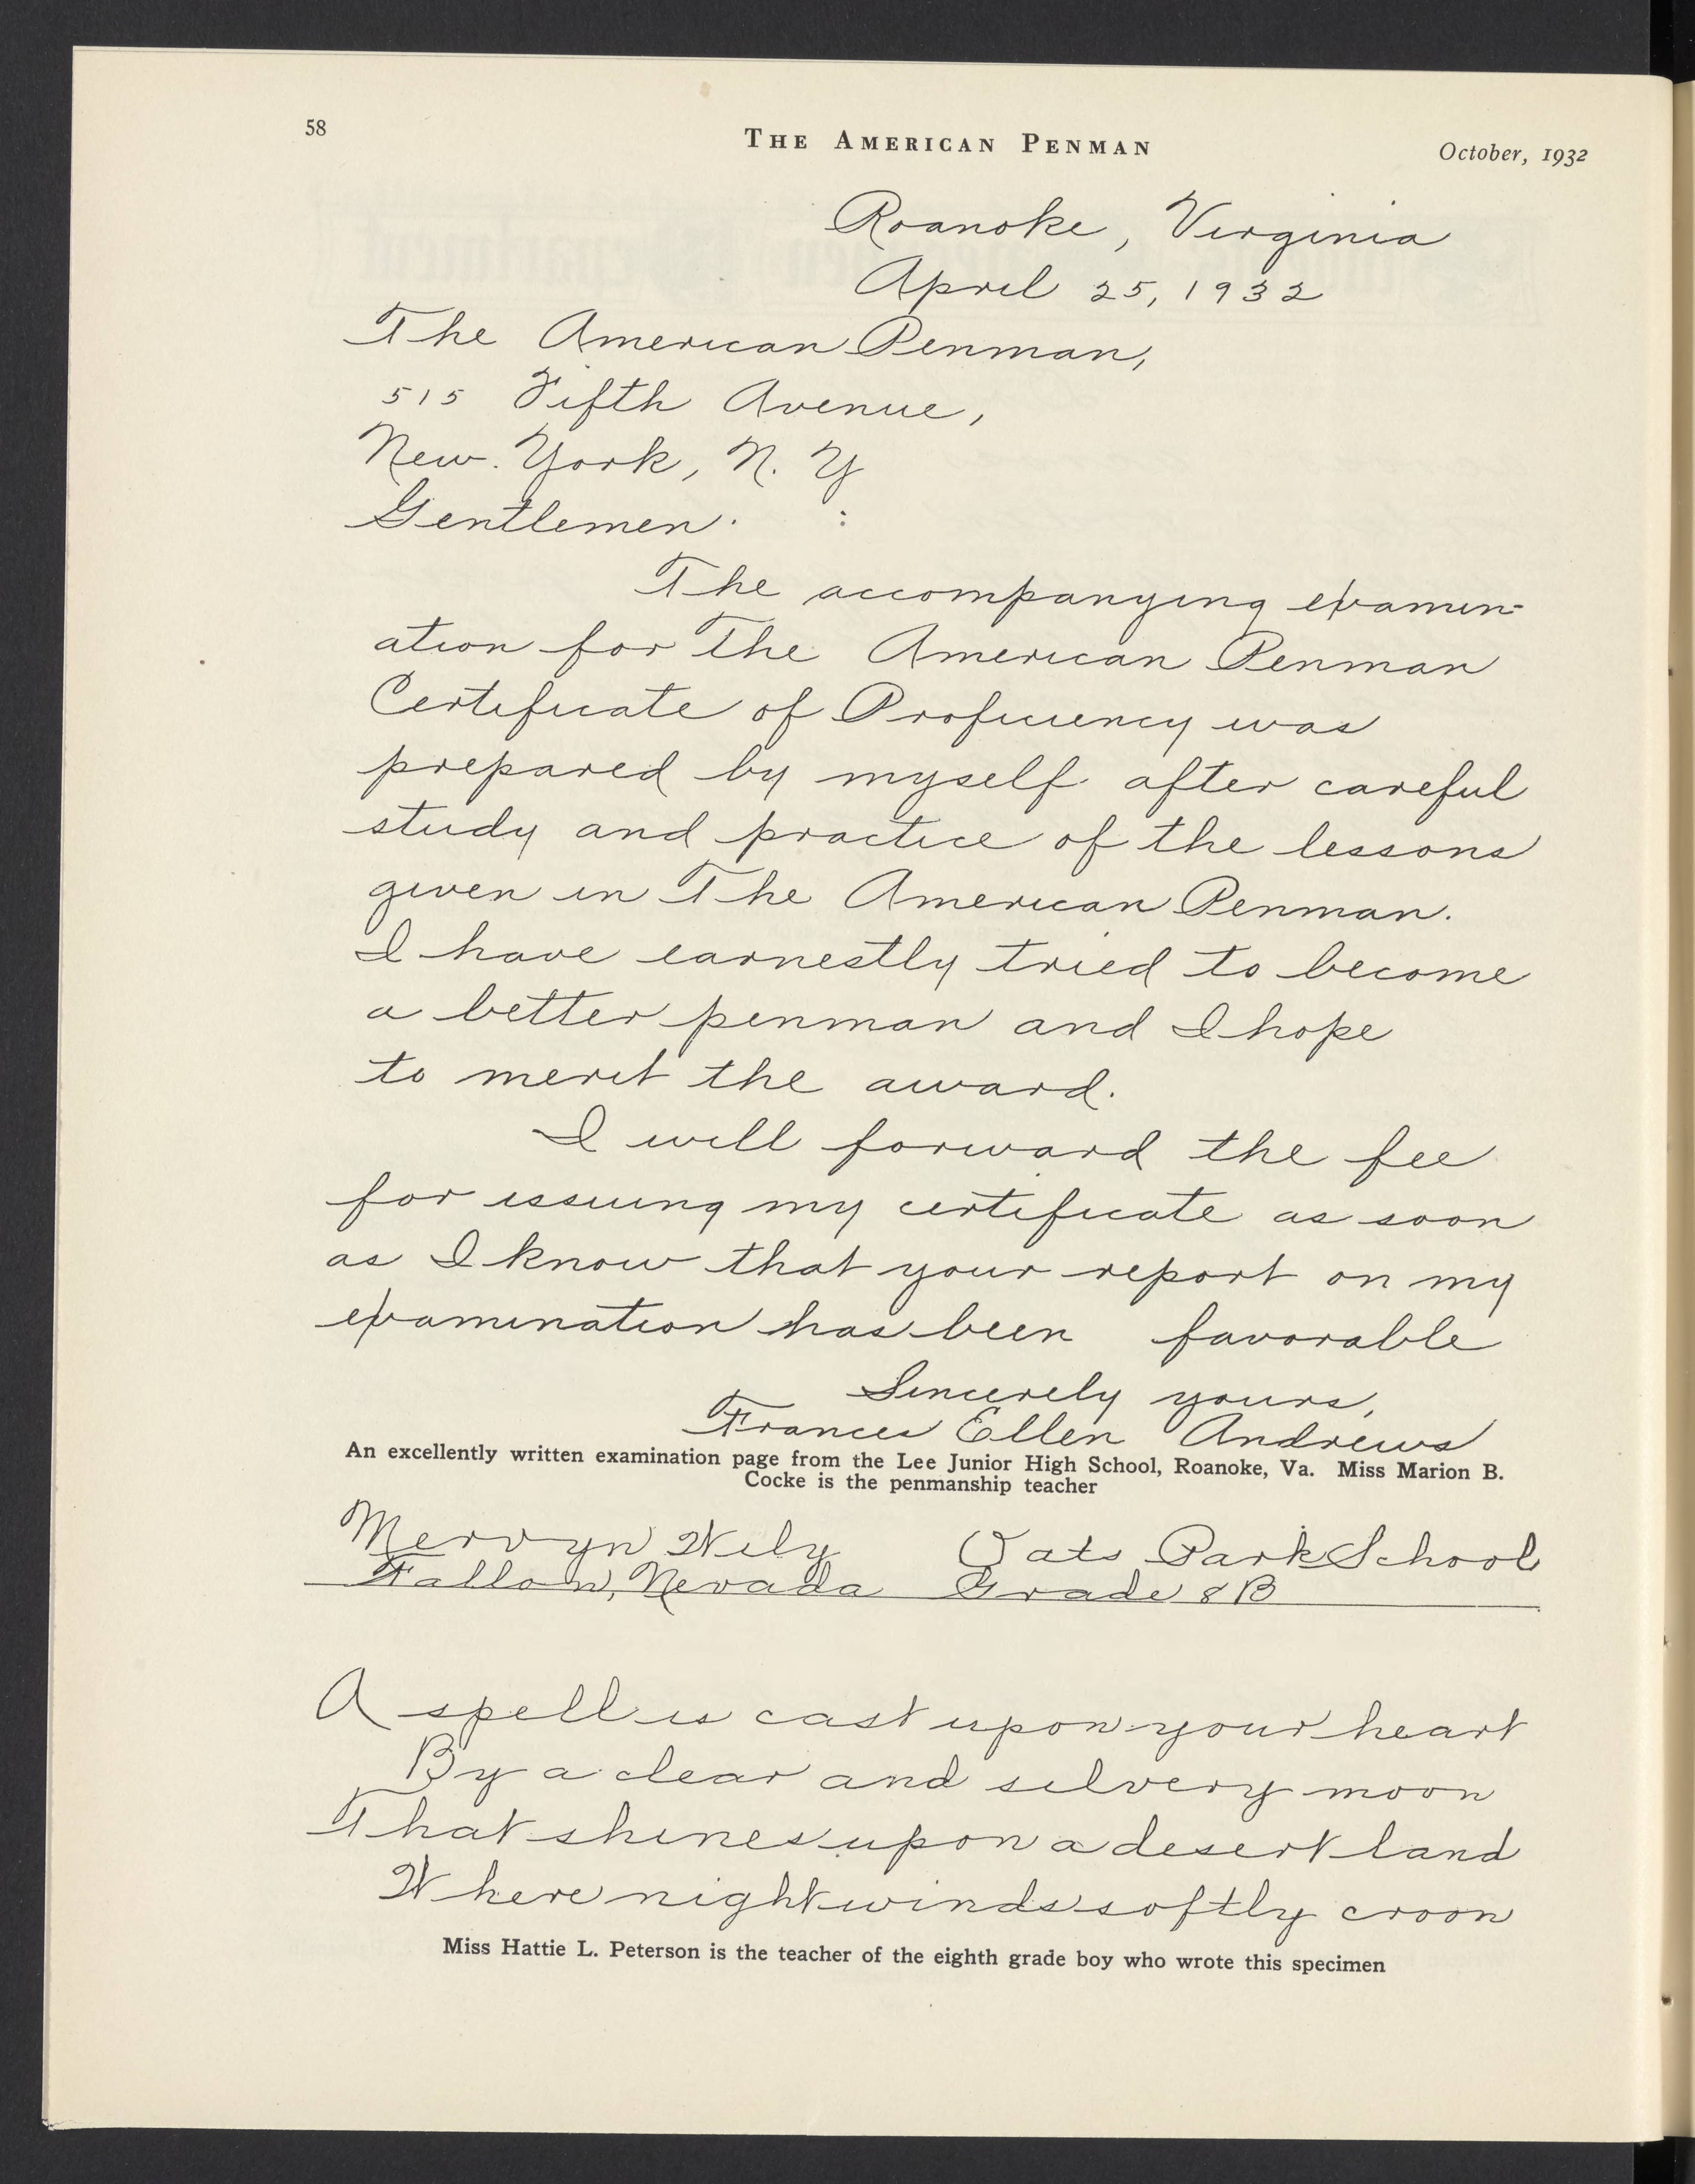 58
THE AMERICAN PENMAN
October, 1932
Roanoke, Virginia
April 25, 1932
The American Penman,
515 Fifth Avenue,
New. York, N. Y
Gentlemen. :
The accompanying examin-
ation for The American Penman
Certificate of Proficiency was
prepared by myself after careful
study and practice of the lessons
given in The American Penman.
I have earnestly tried to become
a better penman and I hope
to merit the award.
I will forward the fee
for issuing my certificate as soon
as I know that your report on my
examination has been favorable
Sincerely yours,
Frances Ellen Andrews
An excellently written examination page from the Lee Junior High School, Roanoke, Va. Miss Marion B.
Cocke is the penmanship teacher
Mervyn Wily Oats Park School
Fallon, Nevada Grade 8B
A spell is cast upon your heart
By a clear and silvery moon
That shines upon a desert land
Where night winds softly croon
Miss Hattie L. Peterson is the teacher of the eighth grade boy who wrote this specimen